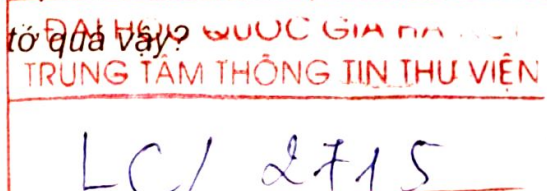 tớ quá vậy?
ĐẠI HỌC QUỐC GIA HÀ NỘI
TRUNG TÂM THÔNG TIN THƯ VIỆN
LC/ 2715